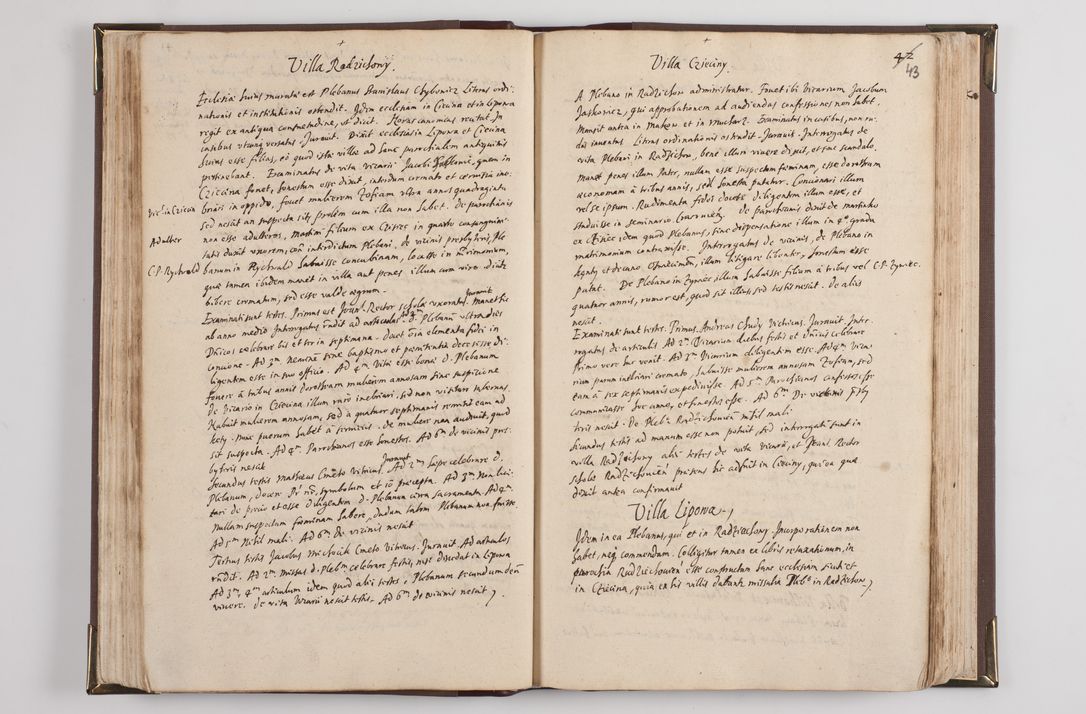 Villa Radzichony.
Ecclesia huius muratæ est Plebanus Stanislaus Chybowicz Literas ordi-
nationis et institutionis ostendit. Idem ecclesiam in Ciecina et in Lipowa
regit ex antiqua consuetudine, ut dicit. Horas canonicas recitat. In
casibus utcunq versatus. Jurauit. Dixit ecclesias in Lipowa et Ciecina
huius esse filias, eò quod istæ villæ ad hanc parochialem antiquitus
pertinebant. Examinatus de vita vicarii Jacobi quem in
Cziecina fouet, honestum esse dixit, interdum cremato et ceruisia ine-
Vic. in Ciecin
briari in oppido, fouet mulierem Zofiam vltra annos quadraginta
sed nescit an suspecta sit, prolem cum illa non habet. De parochianis
Adulter
non esse adulteros, Martini filium ex Cziecz in quarto consanguini-
tatis duxit vxorem, contra interdictum Plebani. De vicinis presbyteris, Ple
C.P. Rychwald
banum in Rychwald habuisse concubinam, locasse in matrimonium,
quæ tamen ibidem manet in villa aut penes illum cum viro. dixit
bibere crematum, sed esse valde ægrum.
Examinati sunt testes. Primus est Joan. Rector scholæ vxoratus. Jurauit Manet hic
ab anno medio Interrogatus respondit ad articulos Ad 2m Plebanum vltra dies
Dnicos celebrare bis et ter in septimana. Docet etiam elementa fidei in
concione. Ad 3m neminem sine baptismo et pœnitentia decessisse di-
ligentem esse in suo officio. Ad 4m Vitæ esse bonæ D. Plebanum
fouere à tribus annis Dorotheam mulierem annosam sine suspicione
De Vicario in Cziecina illum rarò inebriari, sed non visitare tabernas
Habuit mulierem annosam, sed à quatuor septimanis remisit eam ad
Kęty. Nunc puerum habet à seruitiis. de muliere non audiuit, quod
sit suspecta. Ad 5m. Parochianos esse honestos. Ad 6m de vicinis pres-
byteris nescit
Secundus testis Matheus Cmeto Vitricus, Jurauit Ad 2m sæpe celebrare D.
Plebanum, docere Pr nr, symbolum et 10 præcepta. Ad 3m Non lici-
tari de precio et esse diligentem D. Plebanum circa sacramenta. Ad 4m.
Nullam suspectam fœminam habere, dudum talem Plebanum non fuisse.
Ad 5m Nihil mali. Ad 6m De vicinis nescit
Tertius testis Jacobus Michocik Cmeto Vitricus. Jurauit. Ad articulos
rndit. Ad 2m missas D. Plebm celebrare festis, nisi discedat in Lipowa
Ad 3m, 4m articulum idem quod alii testes, Plebanum secundum deum
viuere. De vita Vicarii nescit testis. Ad 6m de vicinis nescit
42
43
Villa Cziećiny.
A Plebano in Radzichow administratur. Fouet ibi Vicarium Jacobum
Jaskowicz, qui approbationem ad audiendas confessiones non habet.
Mansit antea in Makow et in Mucharz. Examinatus in casibus, non ru-
dis inuentus. Literas ordinationis ostendit. Jurauit. Interrogatus de
vita Plebani in Radzichow, bene illum viuere dixit, et sine scandalo.
Manet penes illum Pater, nullam esse suspectam fœminam, esse Dorotheam
œconomam à tribus annis, sed honesta putatur. Concionari illum
vel se ipsum. Rudimenta fidei docere diligentem illum esse, et
studuisse in seminario Cracouien. De parochianis dixit de Martino
ex Cziecz idem quod Plebanus, sine dispensatione illum in 4o gradu
matrimonium contraxisse. Interrogatus de vicinis, de Plebano in
Kęnty et decano Oswiecimen, illum litigare libenter, honestum esse
putat. De Plebano in Zywiec illum habuisse filium à tribus vel C.P. Zywiec.
quatuor annis, rumor est, quod sit illius, sed testis nescit. De aliis
nescit.
Examinati sunt testes. Primus. Andreas Chudy Victricus. Jurauit Inter-
rogatus de articulis Ad 2m Vicarium diebus festis et dnicis celebrare
Primo vere huc venit. Ad 3m Vicarium diligentem esse. Ad 4m Vica-
rium parum inebriari cremato, habuisse mulierem annosam Zofiam, sed
eam à sex septimanis expediuisse. Ad 5m Parochianos confessos esse
communicasse hoc anno, et honestos esse. Ad 6m De vicinis Presby-
teris nescit. De Plebo. Radzichouien nihil mali.
Secundus testis ad manum esse non potuit, sed interrogati sunt in
villa Radzichony alii testes de vita vicarii, et Joans Rector
scholæ Radzichouien præsens hic adfuit in Cieciny, qui ea quæ
dixit antea confirmauit
Villa Lipowa.
Idem in ea Plebanus, qui et in Radziechony. Incorporationem non
habet, neq commendam. Colligitur tamen ex libris retaxationum, in
parochia Radzichouien esse constructam hanc ecclesiam sicut et
in Cziecina, quia ex his villis dabatur missalia Plebo in Radzichow.